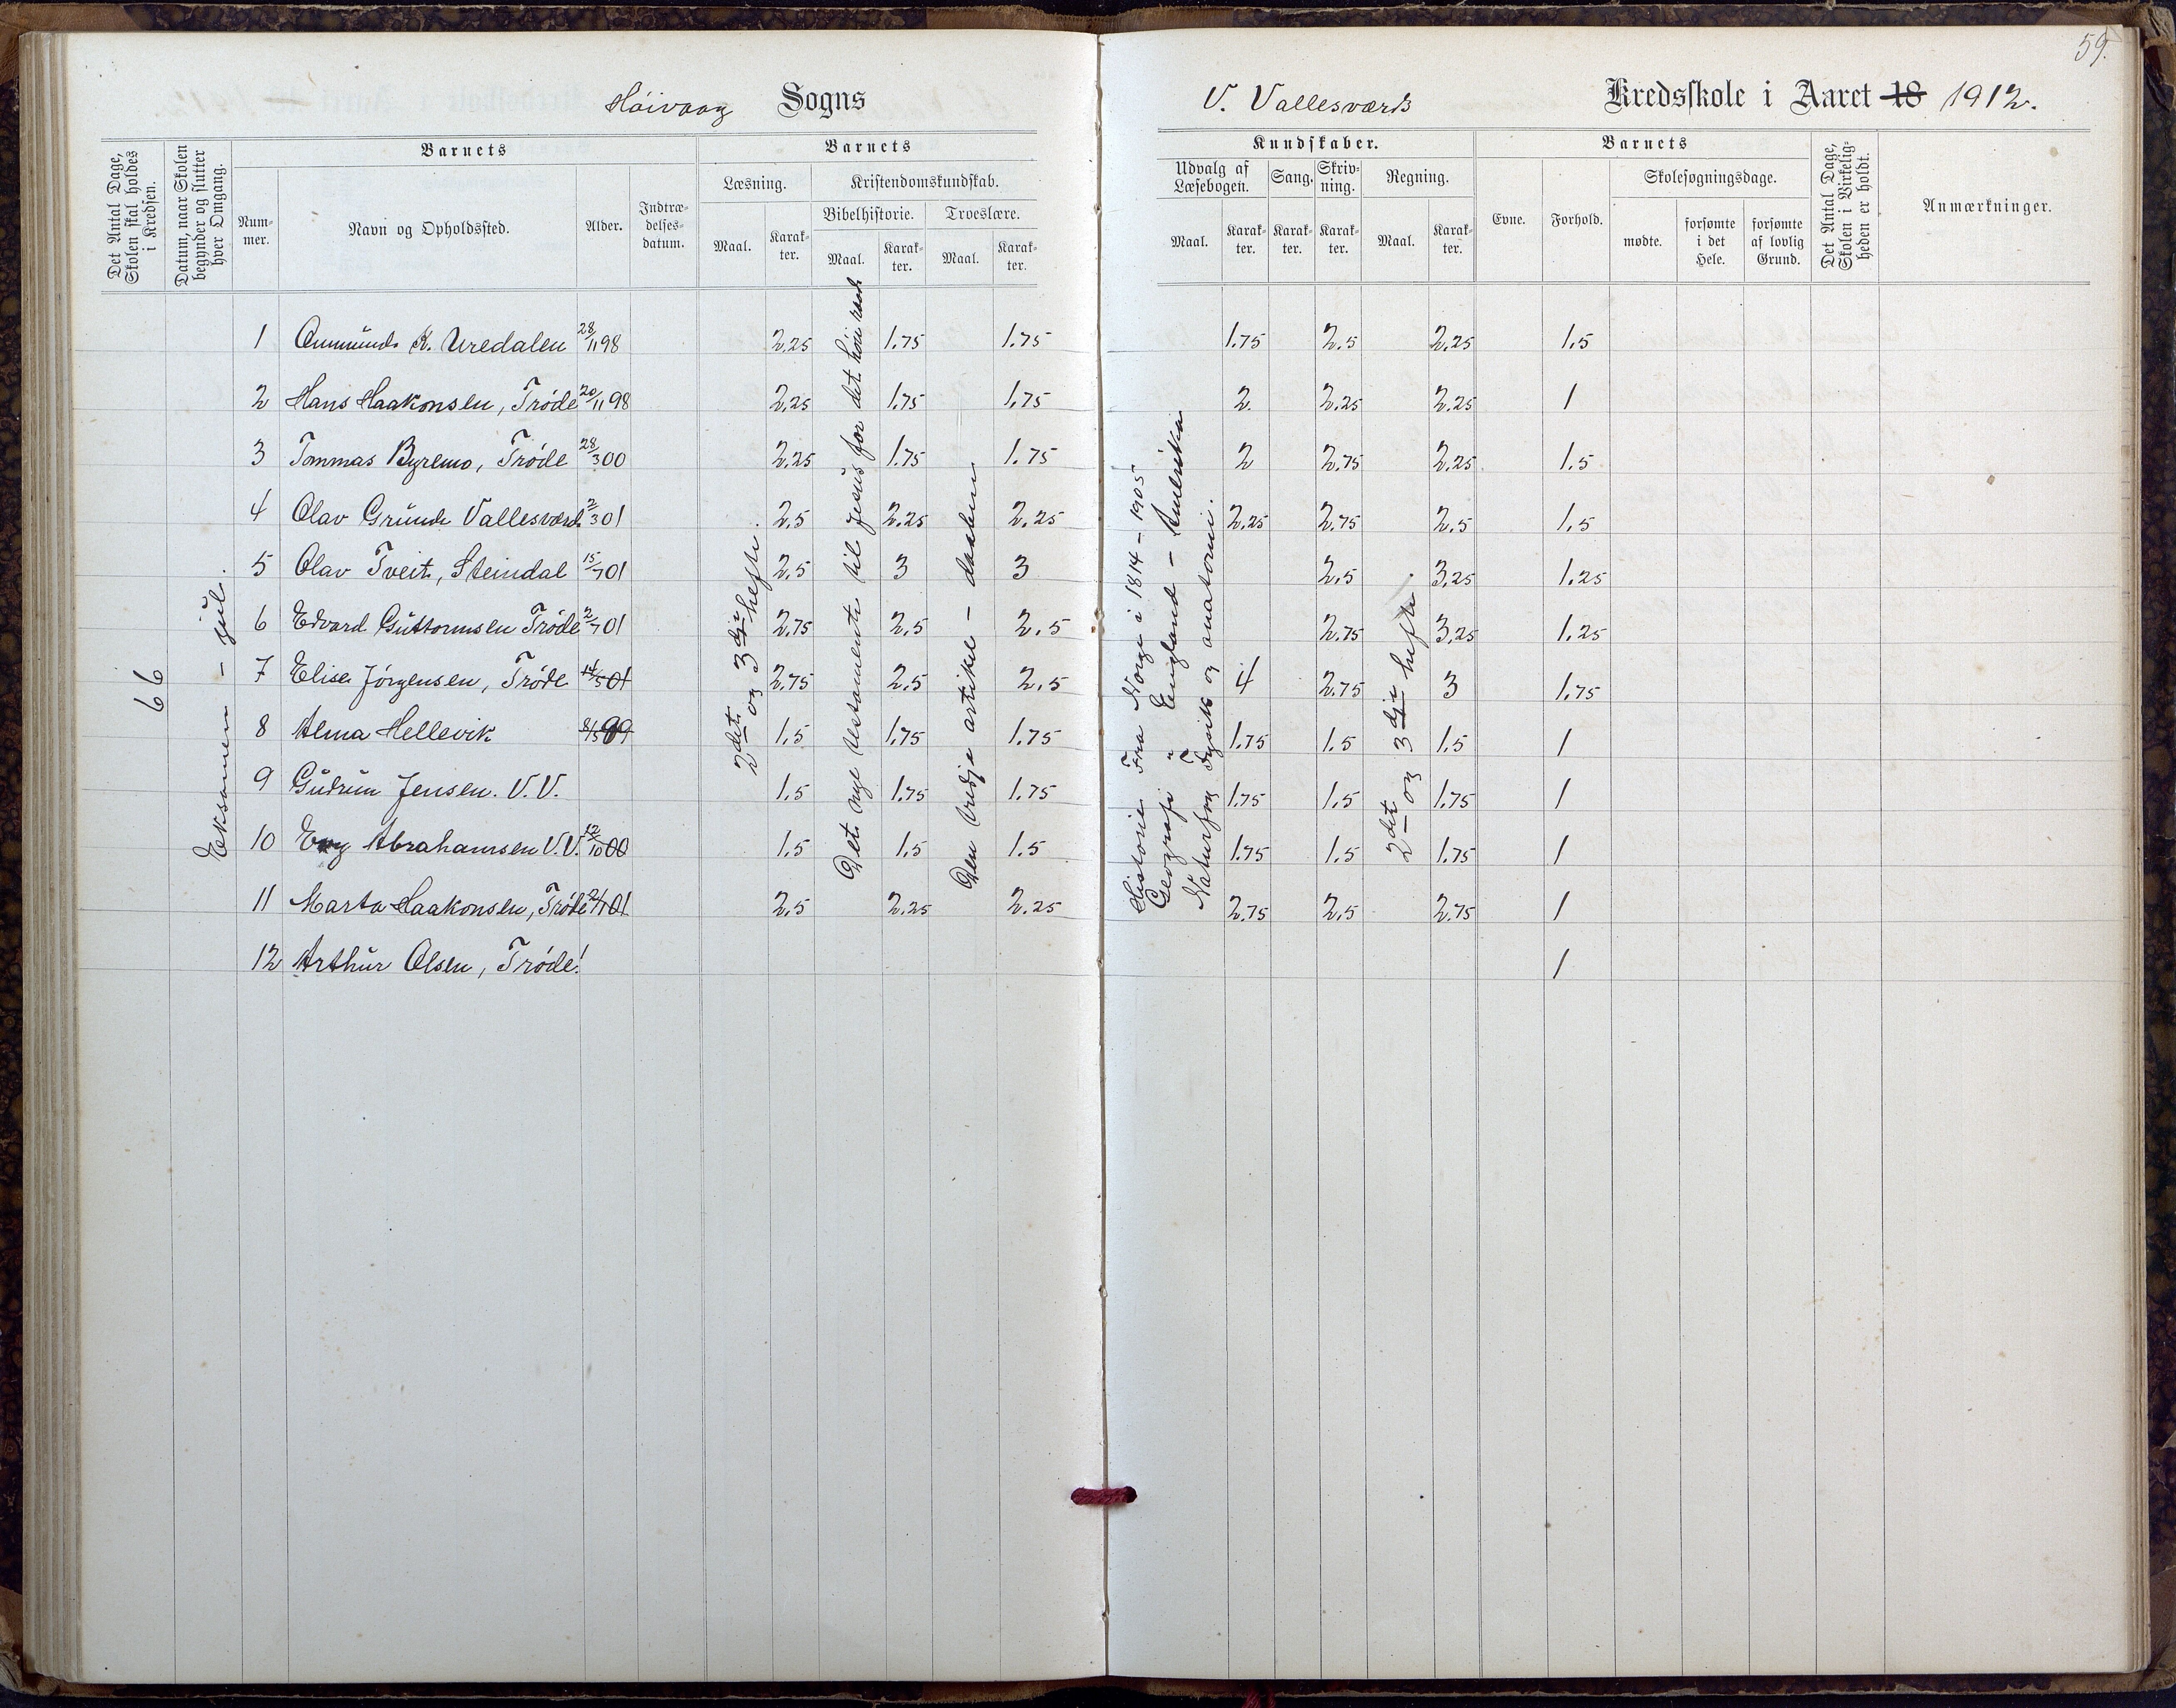 59.
Høivaag Sogns
V. Vallesværd Kredsskole i Aaret 18 1912.
Det Antal Dage, Skolen skal holdes i Kredsen.
Datum, naar Skolen begynder og slutter hver Omgang.
Barnets
Nummer.
Navn og Opholdssted.
Alder.
Indtrædelsesdatum.
Barnets
Læsning.
Maal.
Karakter.
Kristendomskundskab.
Bibelhistorie.
Maal.
Karakter.
Troeslære.
Maal.
Karakter.
Kundskaber.
Udvalg af Læsebogen.
Maal.
Karakter.
Sang.
Karakter.
Skrivning.
Karakter.
Regning.
Maal.
Karakter.
Barnets
Evne.
Forhold.
Skolesøgningsdage.
mødte.
forsømte i det Hele.
forsømte af lovlig Grund.
Det Antal Dage, Skolen i Virkeligheden er holdt.
Anmærkninger.
66
Eksamen - jul.
2det og 3dje hefte.
Det nye testamente til Jesus for det høie raad
Den tredje artikel - daaben
Historie Fra Norge i 1814 - 1905
Geografi " England - Amerika
Naturfag Fysik og anatomi.
2det og 3dje hefte.
1 Ommund K. Uredalen 28/11 98 2,25 1.75 1.75 1.75 2.5 2.25 1.5
2 Hans Haakonsen, Trøde 20/11 98 2,25 1.75 1.75 2. 2,25 2.25 1
3 Tommas Byremo, Trøde 28/3 00 2.25 1.75 1.75 2 2.75 2.25 1.5
4 Olav Grunde Vallesværd 2/3 01 2.5 2.25 2.25 2.25 2.75 2.5 1.5
5 Olav Tveit, Steindal 15/7 01 2.5 3 3 2.5 3.25 1.25
6 Edvard Guttormsen Trøde 2/7 01 2.75 2.5 2.5 2.75 3.25 1.25
7 Elise Jørgensen, Trøde 14/5 01 2.75 2.5 2.5 4 2.75 3 1.75
8 Alma Hellevik 8/5 99 1.5 1.75 1.75 1.75 1.5 1.5 1
9 Gudrun Jensen. V.V. 1.5 1.75 1.75 1.75 1.5 1.75 1
10 Abrahamsen V.V. 12/10 00 1.5 1.5 1.5 1.75 1.5 1.75 1
11 Marta Haakonsen, Trøde 01 2.5 2.25 2.25 2.75 2.5 2.75 1
12 Arthur Olsen, Trøde! 1